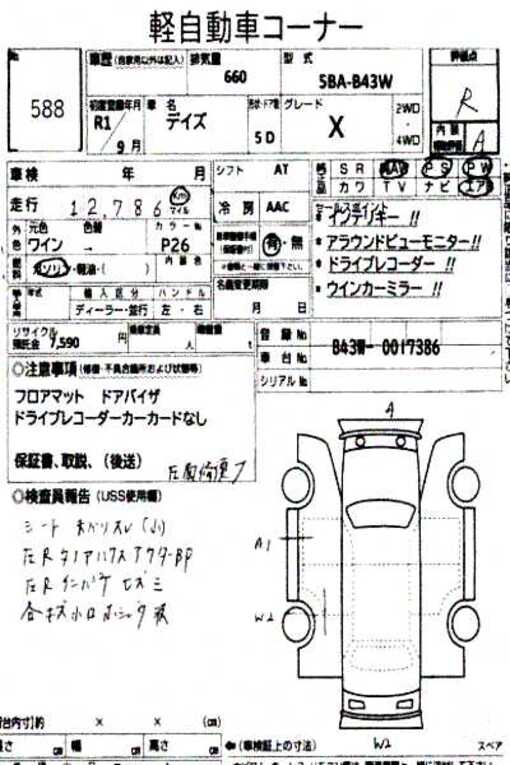 軽自動車コーナー
No
588
車歴 (自家用以外は記入)
排気量
660
型式
5BA-B43W
評価点
R
初度登録年月
R1
9月
車名
デイズ
形状・ドア数
5D
グレード
X
2WD
4WD
内装
A
車検 年 月
シフト AT
SR AW PS PW
カワ TV ナビ エアB
走行 12,786 Km マイル
冷房 AAC
セールスポイント
* インテリキー!!
* アラウンドビューモニター!!
* ドライブレコーダー!!
* ウインカーミラー!!
外色 元色 色替 カラーNo
ワイン → P26
有・無
燃料 ガソリン・軽油・( ) 内装色
名義変更期限
月 日
年式 輸入区分 ハンドル
ディーラー・並行 左・右
リサイクル預託金 7,590円
乗車定員 人
積載量 t
登録No
車台No B43W-0017386
シリアルNo
◎注意事項 (修復・不具合箇所および状態等)
フロアマット ドアバイザ
ドライブレコーダーカーカードなし
保証書、取説、(後送)
◎検査員報告 (USS使用欄)
A
A1
W2
W2
荷台内寸)約 × × (cm)
長さ cm 幅 cm 高さ cm
←(車検証上の寸法)
スペア